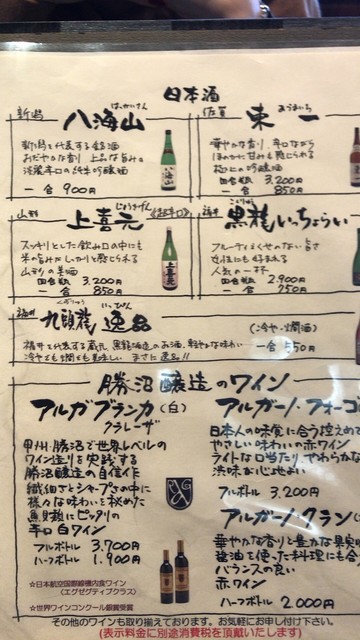 日本酒
新潟 八海山 はっかいさん
新潟を代表する銘酒
おだやかな香り 上品な旨みの
淡麗辛口の純米吟醸酒
一合 900円
佐賀 東一
華やかな香り、辛口ながら
ほのかに甘みも感じられる
極上の吟醸酒
四合瓶 3,200円
一合 850円
山形 上喜元 じょうきげん (超辛口)
スッキリとした飲み口の中にも
米の旨みがしっかりと感じられる
山形の美酒
四合瓶 3,200円
一合 850円
福井 黒龍 いっちょらい こくりゅう
フルーティでくせのない旨さ
女性にも好まれる
人気の一杯
四合瓶 2,900円
一合 750円
福井 九頭龍 逸品 くずりゅう いっぴん
(冷や・燗酒)
福井を代表する蔵元、黒龍酒造のお酒、軽やかな味わい
冷やでも燗でも美味しい まさに逸品!!
一合 550円
勝沼醸造のワイン
アルガブランカ(白)
クラレーザ
甲州・勝沼で世界レベルの
ワイン造りを実践する
勝沼醸造の自信作
繊細さとシャープさの中に
様々な味わいを秘めた
魚貝類にピッタリの
辛口白ワイン
フルボトル 3,700円
ハーフボトル 1,900円
☆日本航空国際線機内食ワイン
(エグゼクティブクラス)
☆世界ワインコンクール銀賞受賞
アルガーノ・フォーゴ
日本人の味覚に合う控えめで
やさしい味わいの赤ワイン
ライトな口当たり やわらかな
渋味が心地よい
フルボトル 3,200円
アルガーノ クラン
華やかな香りと豊かな果実
醤油を使った料理にも合う
バランスの良い
赤ワイン
ハーフボトル 2,000円
その他のワインも取り揃えております。お気軽にお申し付け下さい。
(表示料金に別途消費税を頂戴いたします)